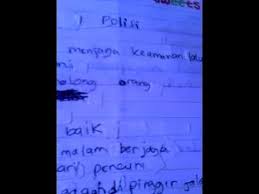 weets
) Polisi
menjaga keamanan
olong orang
baik
malam berjaga
ari pencuri
di pinggir jala